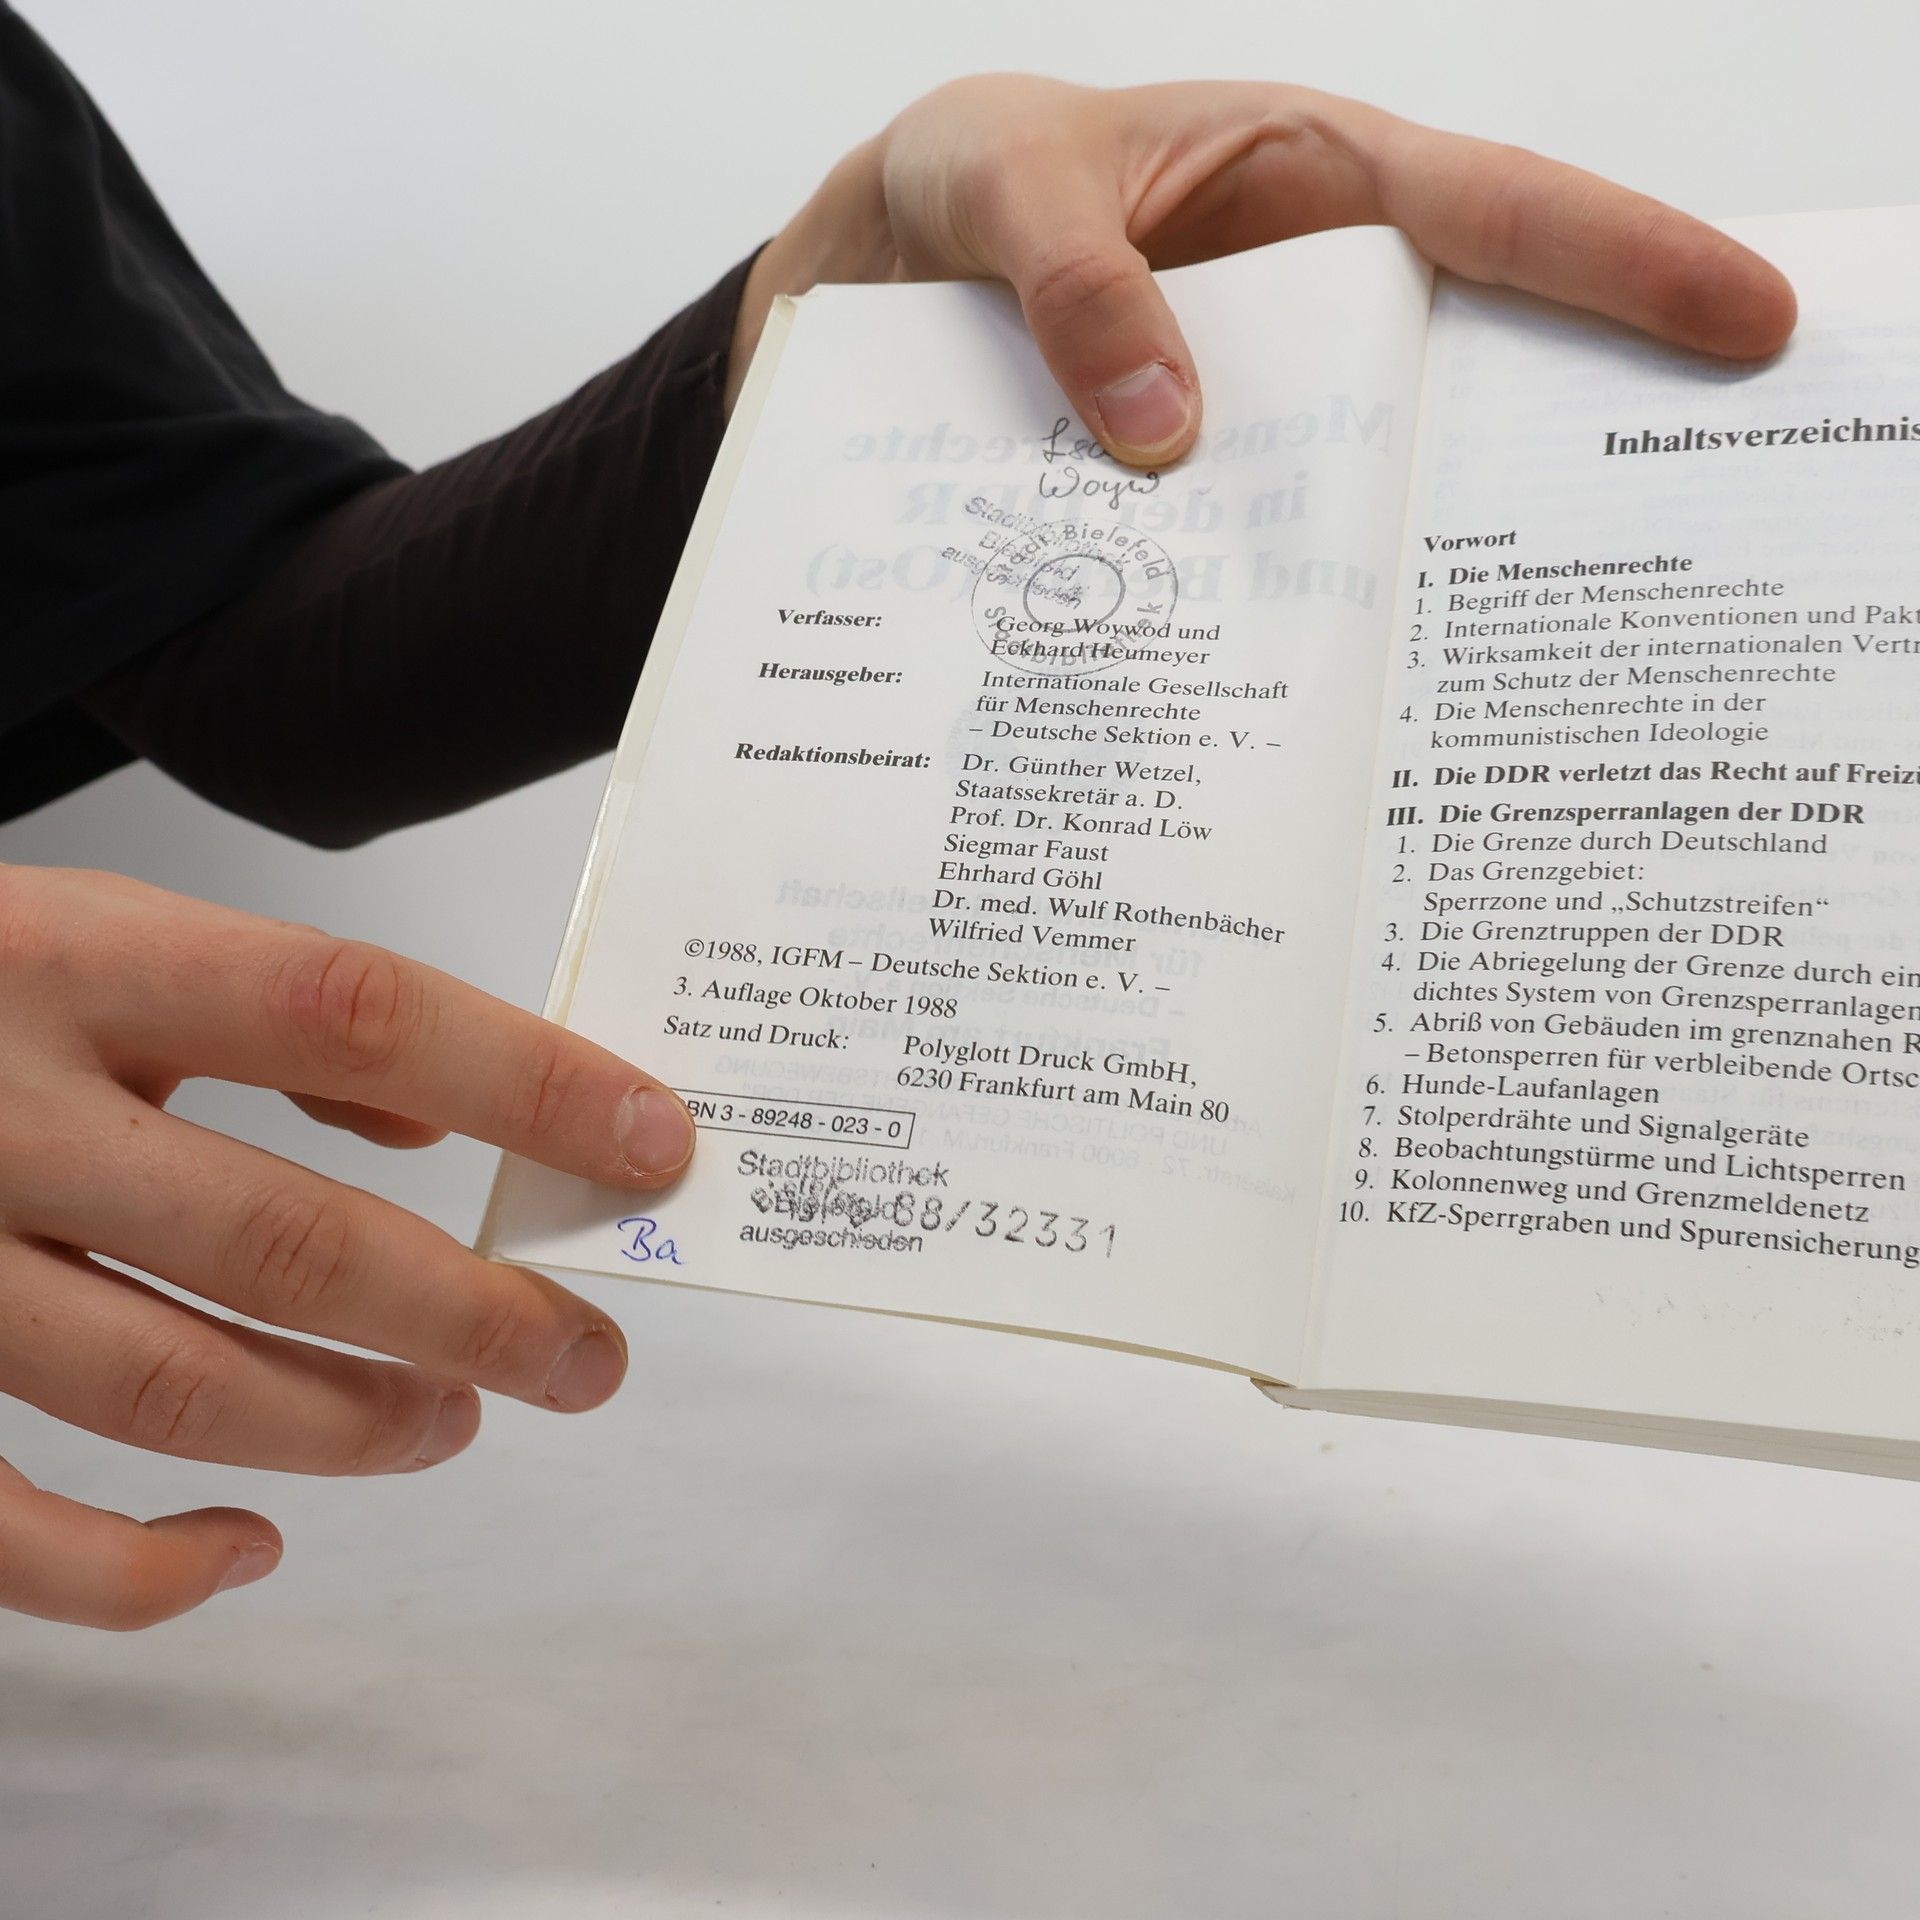 Woyw
Stadtbibliothek
Bielefeld
ausgeschieden
Stadt Bielefeld
Stadtbibliothek
Verfasser: Georg Woywod und
Eckhard Heumeyer
Herausgeber: Internationale Gesellschaft
für Menschenrechte
– Deutsche Sektion e. V. –
Redaktionsbeirat: Dr. Günther Wetzel,
Staatssekretär a. D.
Prof. Dr. Konrad Löw
Siegmar Faust
Ehrhard Göhl
Dr. med. Wulf Rothenbächer
Wilfried Vemmer
©1988, IGFM – Deutsche Sektion e. V. –
3. Auflage Oktober 1988
Satz und Druck: Polyglott Druck GmbH,
6230 Frankfurt am Main 80
BN 3 - 89248 - 023 - 0
Stadtbibliothek
Bielefeld
ausgeschieden
88/32331
Ba
Inhaltsverzeichnis
Vorwort
I. Die Menschenrechte
1. Begriff der Menschenrechte
2. Internationale Konventionen und Pakt
3. Wirksamkeit der internationalen Vertr
zum Schutz der Menschenrechte
4. Die Menschenrechte in der
kommunistischen Ideologie
II. Die DDR verletzt das Recht auf Freizü
III. Die Grenzsperranlagen der DDR
1. Die Grenze durch Deutschland
2. Das Grenzgebiet:
Sperrzone und „Schutzstreifen“
3. Die Grenztruppen der DDR
4. Die Abriegelung der Grenze durch ein
dichtes System von Grenzsperranlagen
5. Abriß von Gebäuden im grenznahen R
– Betonsperren für verbleibende Ortsc
6. Hunde-Laufanlagen
7. Stolperdrähte und Signalgeräte
8. Beobachtungstürme und Lichtsperren
9. Kolonnenweg und Grenzmeldenetz
10. KfZ-Sperrgraben und Spurensicherung